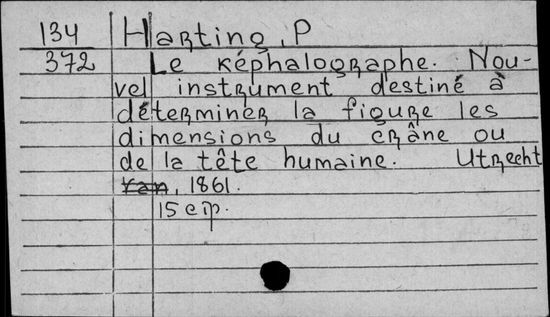 134 Harting, P
372 Le képhalographe. Nou-
vel instrument destiné à
déterminer la figure les
dimensions du crâne ou
de la tête humaine. Utrecht
1861.
15